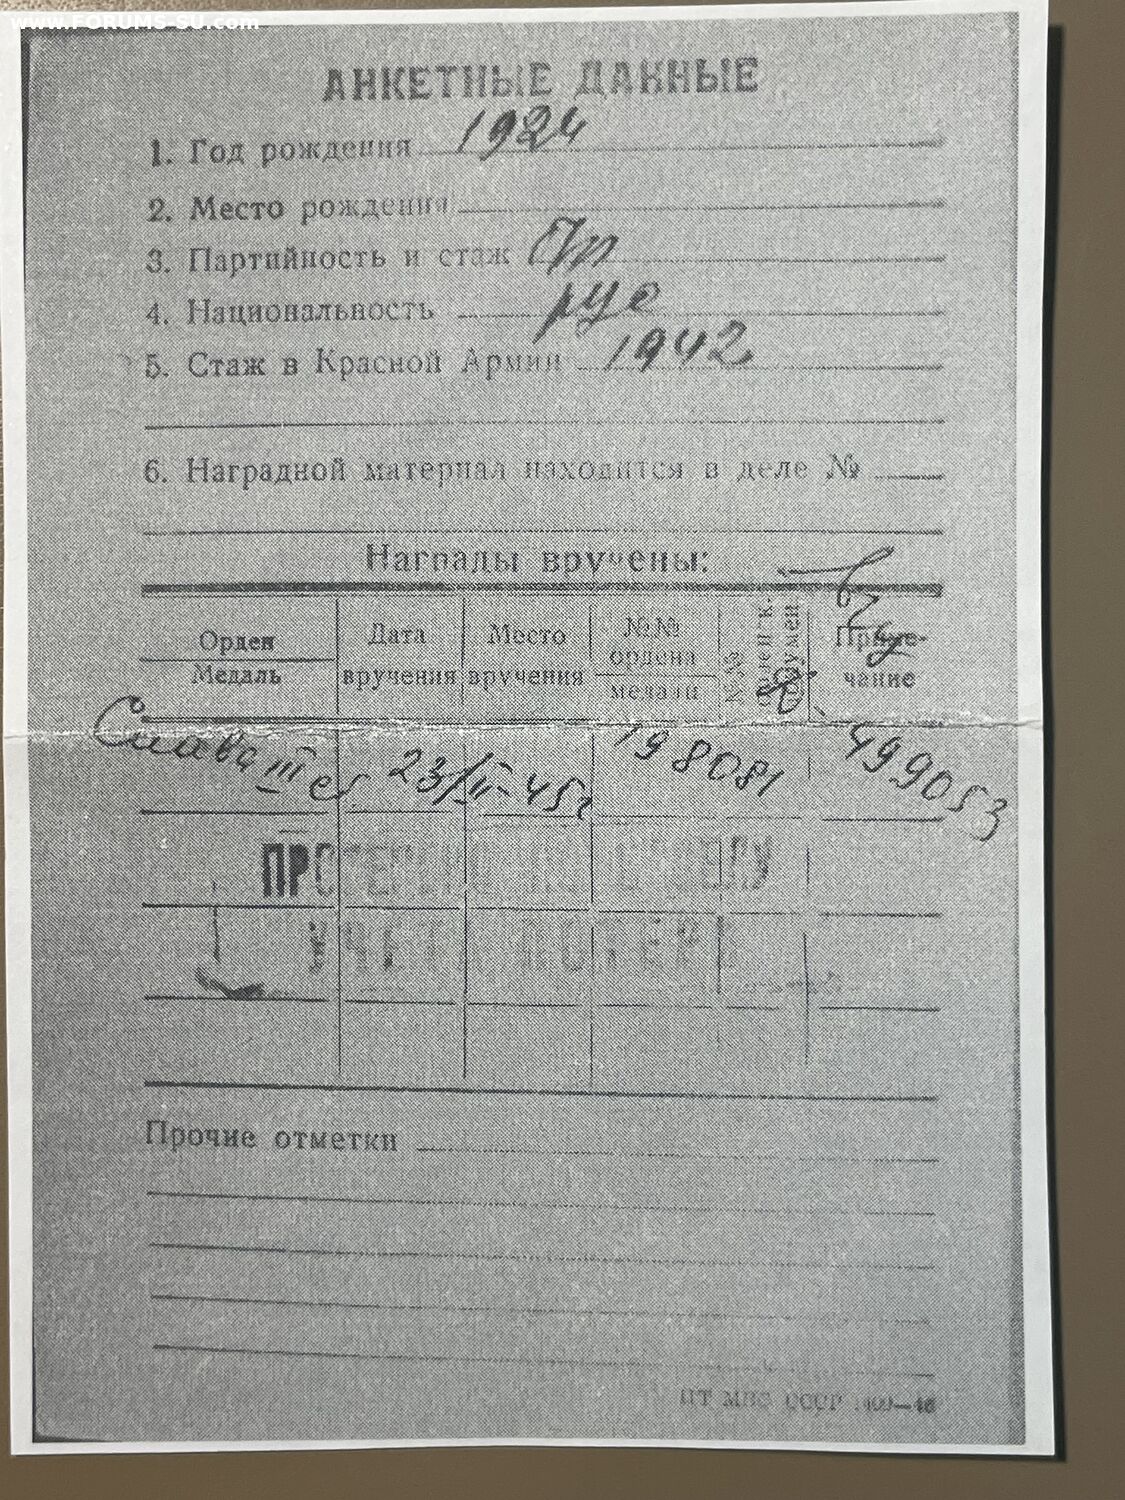 www.FORUMS-SU.com
АНКЕТНЫЕ ДАННЫЕ
1. Год рождения 1924
2. Место рождения
3. Партийность и стаж
4. Национальность рус
5. Стаж в Красной Армии 1942
6. Наградной материал находится в деле №
Награды вручены:
Орден
Медаль
Дата
вручения
Место
вручения
№№
ордена
медали
Приме-
чание
Слава III ст 23/II-45г 198081 499053
ПРОВЕРЕНО ПО ОТДЕЛУ
УЧЕТА ПОТЕРЬ
Прочие отметки